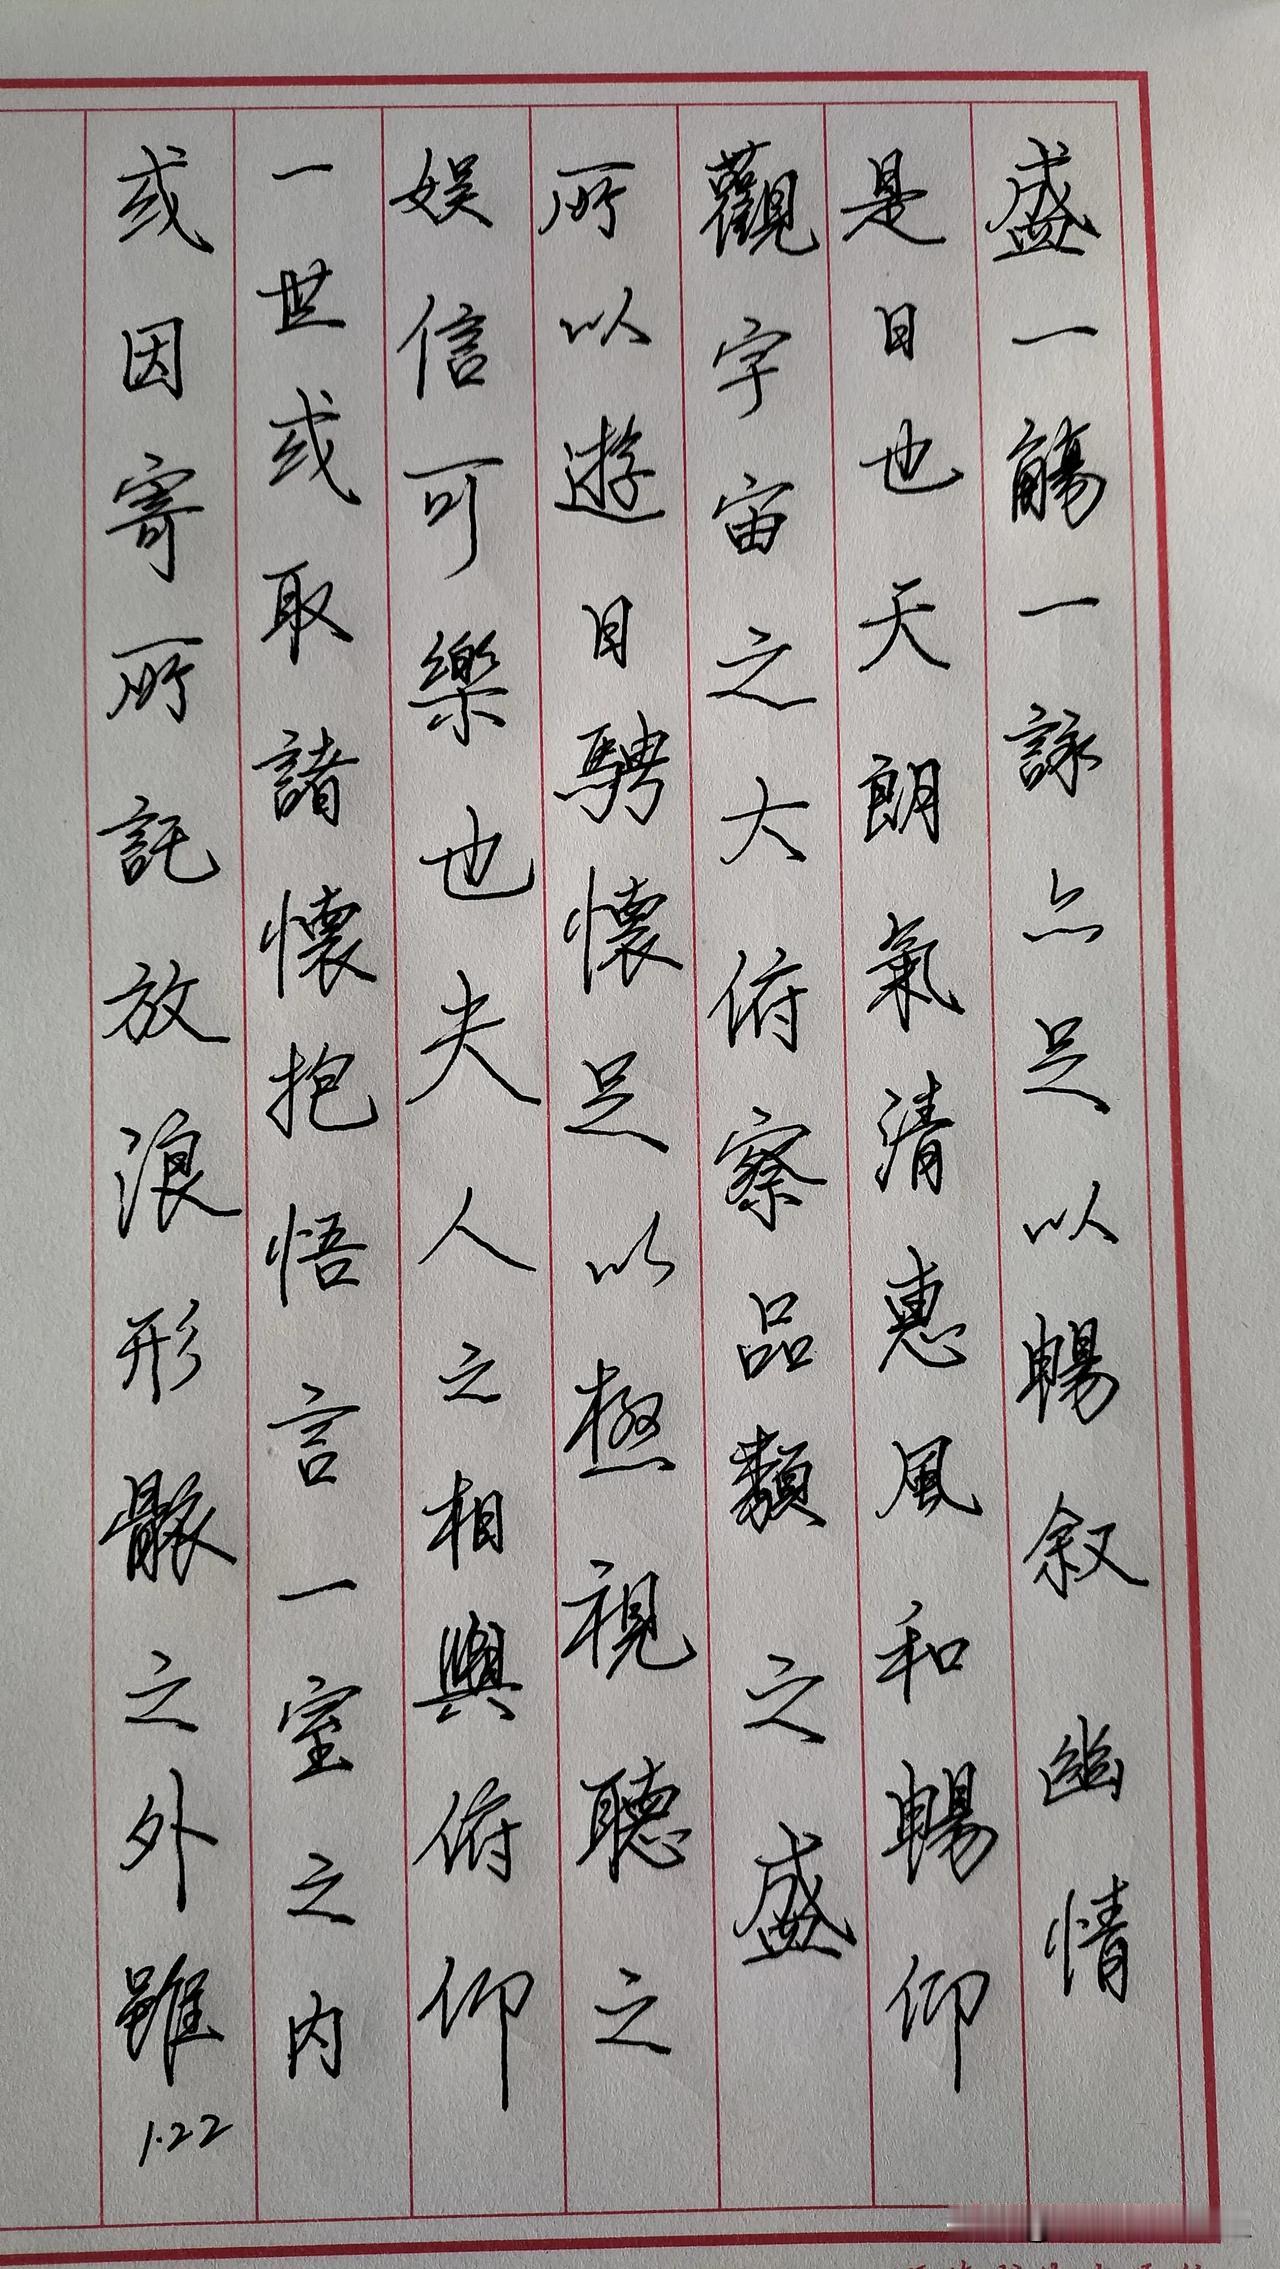 盛一觴一詠亦足以暢叙幽情
是日也天朗氣清惠風和暢仰
觀宇宙之大俯察品類之盛
所以遊目騁懷足以極視聽之
娱信可樂也夫人之相與俯仰
一世或取諸懷抱悟言一室之内
或因寄所託放浪形骸之外雖
1.22